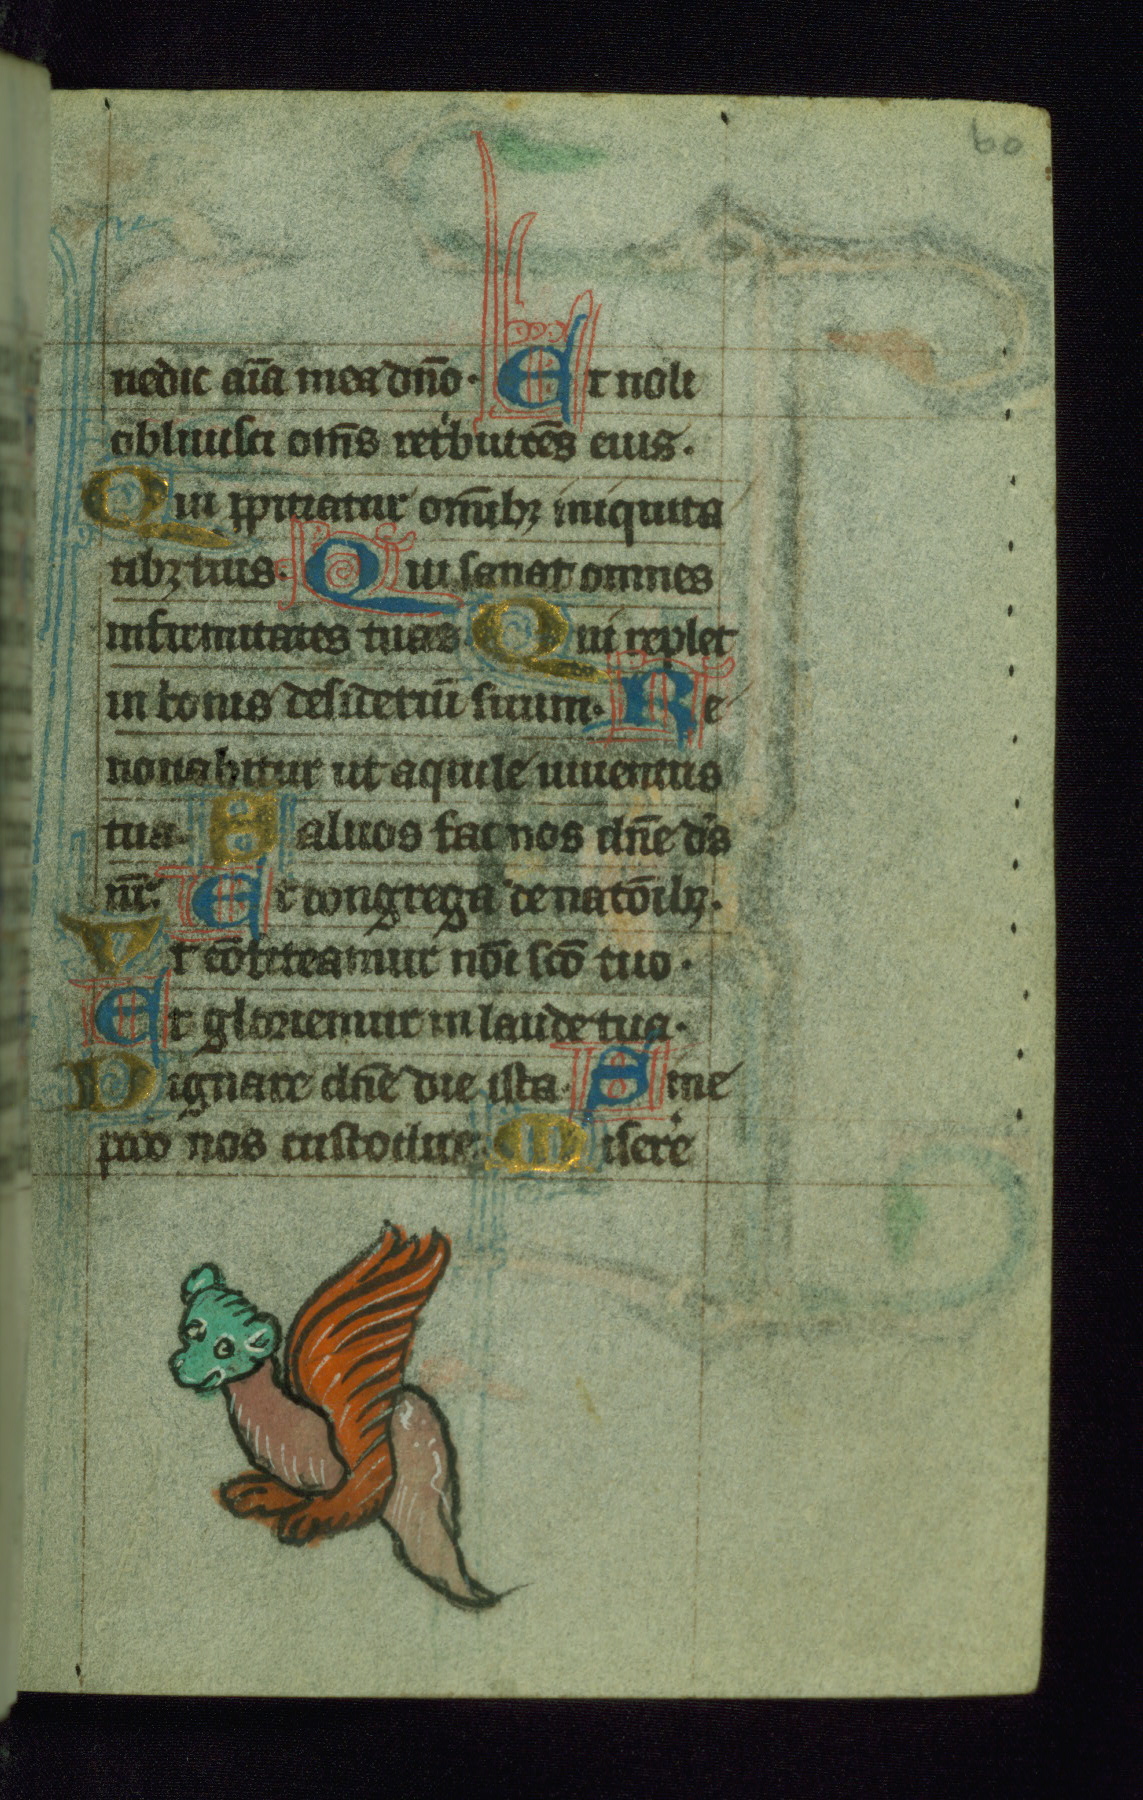 60
nedic aīa mea dn̄o. Et noli
obliuisci om̄s ret'butōēs eius.
Qui ꝓpitiatur om̄ibꝫ iniquita
tibꝫ tuis. Qui sanat omnes
infirmitates tuas. Qui replet
in bonis desideriū tuum. Re
nouabitur ut aquile iuuentus
tua. Saluos fac nos dn̄e d's
nr̄. Et congrega de natōībꝫ.
Vt cōfiteamur nōī scō tuo.
Et gloriemur in laude tua.
Dignare dn̄e die ista. Sine
pctō nos custodire. Misere